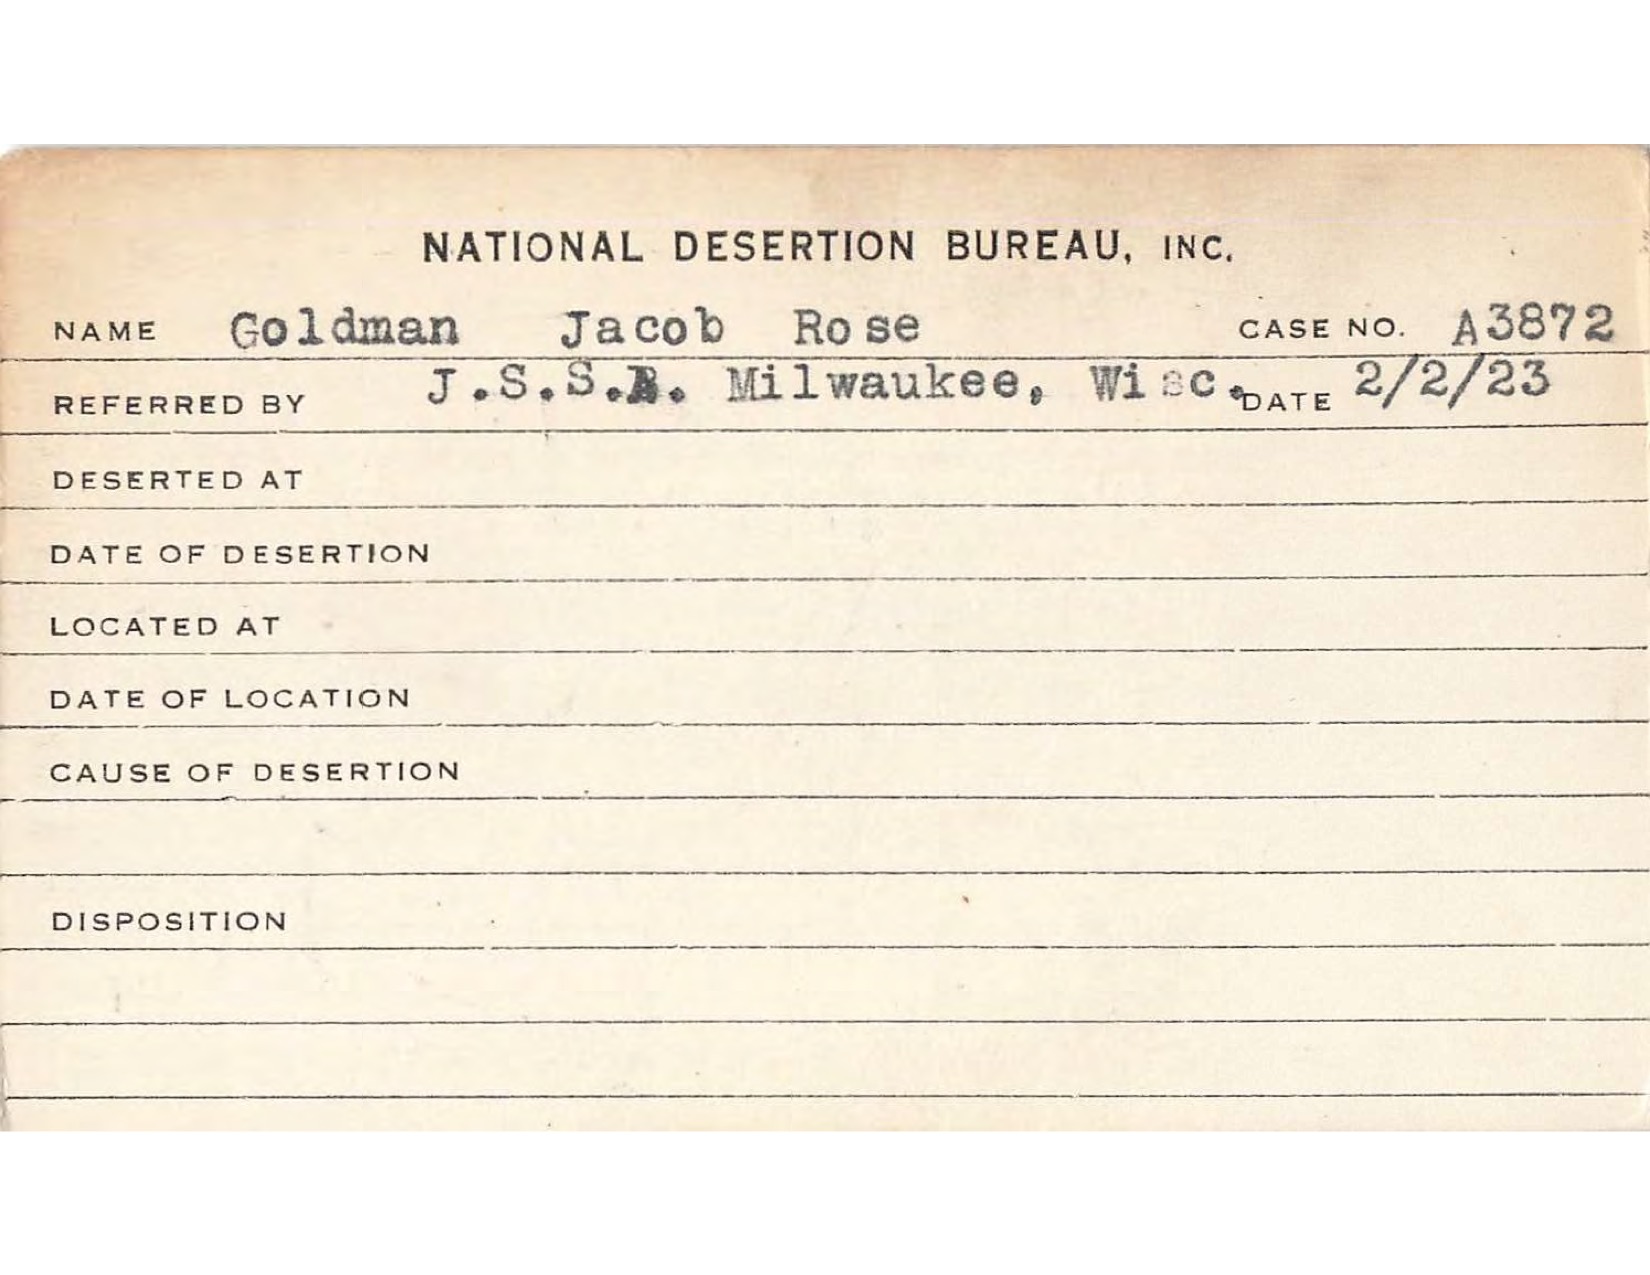 NATIONAL DESERTION BUREAU, INC.
NAME Goldman Jacob Rose CASE NO. A3872
REFERRED BY J.S.S.A. Milwaukee, Wisc. DATE 2/2/23
DESERTED AT
DATE OF DESERTION
LOCATED AT
DATE OF LOCATION
CAUSE OF DESERTION
DISPOSITION